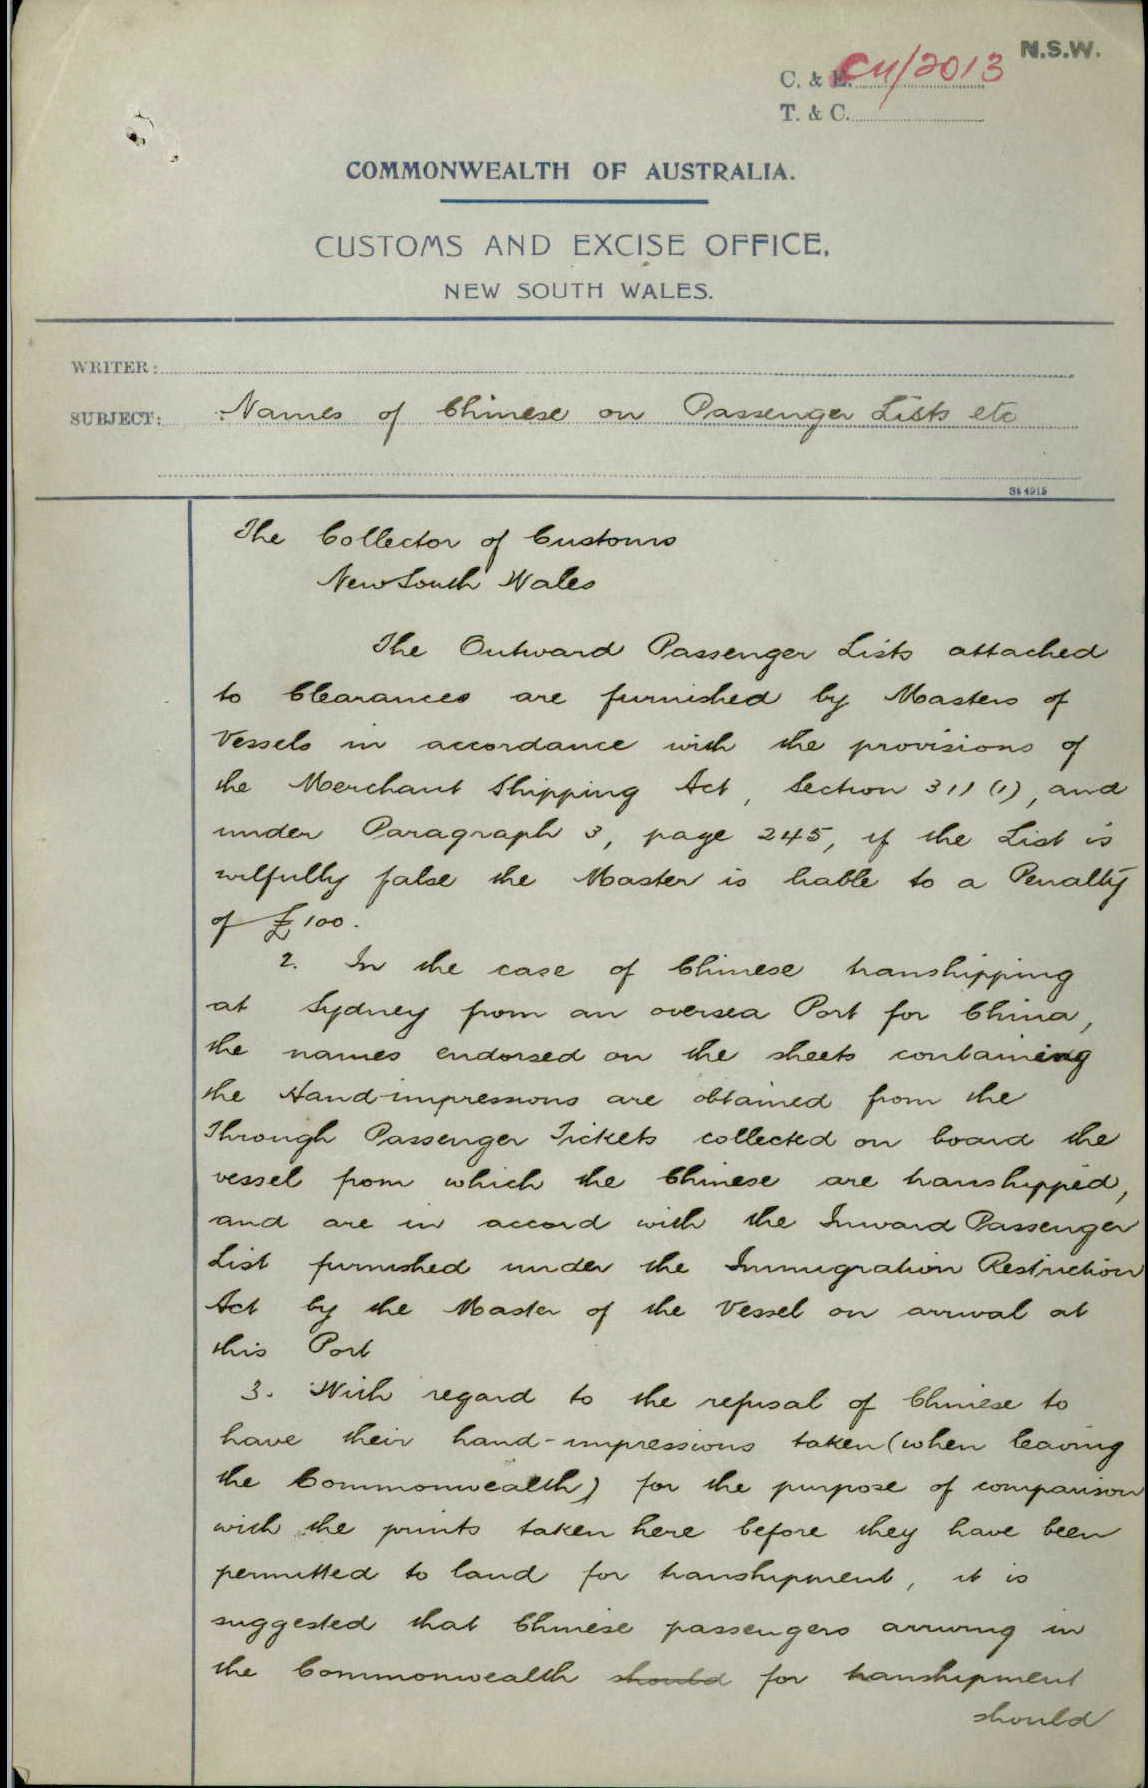 N.S.W.
C. & E. C11/2013
T. & C.
COMMONWEALTH OF AUSTRALIA.
CUSTOMS AND EXCISE OFFICE,
NEW SOUTH WALES.
WRITER:
SUBJECT: Names of Chinese on Passenger Lists etc
St 4915
The Collector of Customs
New South Wales
The Outward Passenger Lists attached
to Clearances are furnished by Masters of
Vessels in accordance with the provisions of
the Merchant Shipping Act, Section 311 (1), and
under Paragraph 3, page 245, if the List is
wilfully false the Master is liable to a Penalty
of £100.
2. In the case of Chinese transhipping
at Sydney from an oversea Port for China,
the names endorsed on the sheets containing
the Hand-impressions are obtained from the
Through Passenger Tickets collected on board the
vessel from which the Chinese are transhipped,
and are in accord with the Inward Passenger
List furnished under the Immigration Restriction
Act by the Master of the Vessel on arrival at
this Port
3. With regard to the refusal of Chinese to
have their hand-impressions taken (when leaving
the Commonwealth) for the purpose of comparison
with the prints taken here before they have been
permitted to land for transhipment, it is
suggested that Chinese passengers arriving in
the Commonwealth should for transhipment
should